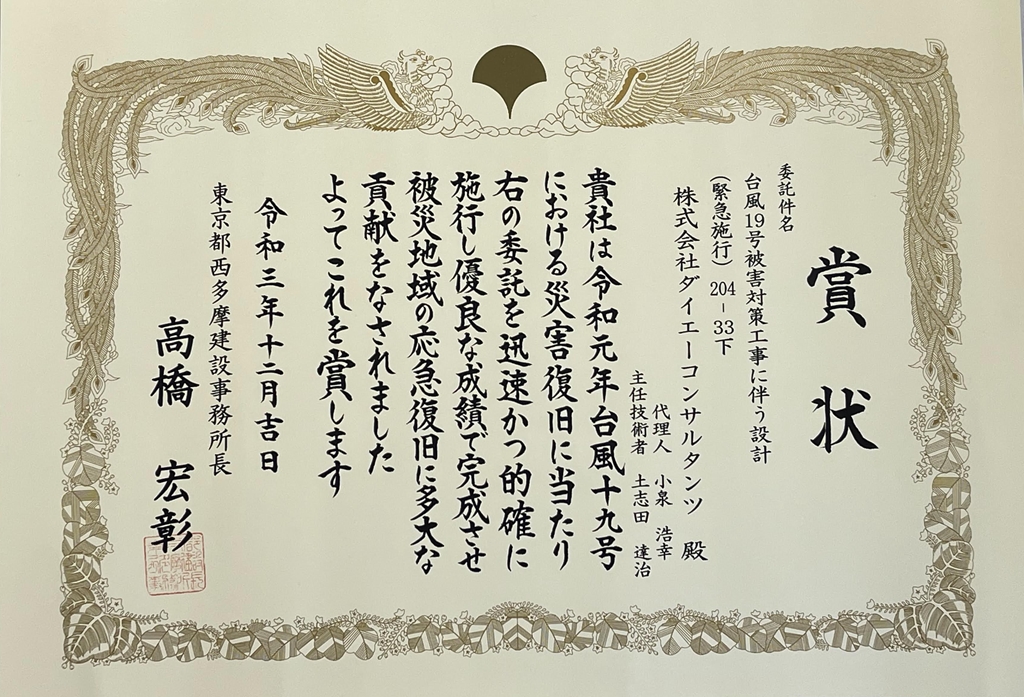 賞状
委託件名
台風19号被害対策工事に伴う設計
(緊急施行) 204-33下
株式会社ダイエーコンサルタンツ 殿
代理人 小泉 浩幸
主任技術者 土志田 達治
貴社は令和元年台風十九号
における災害復旧に当たり
右の委託を迅速かつ的確に
施行し優良な成績で完成させ
被災地域の応急復旧に多大な
貢献をなされました
よってこれを賞します
令和三年十二月吉日
東京都西多摩建設事務所長
高橋 宏彰